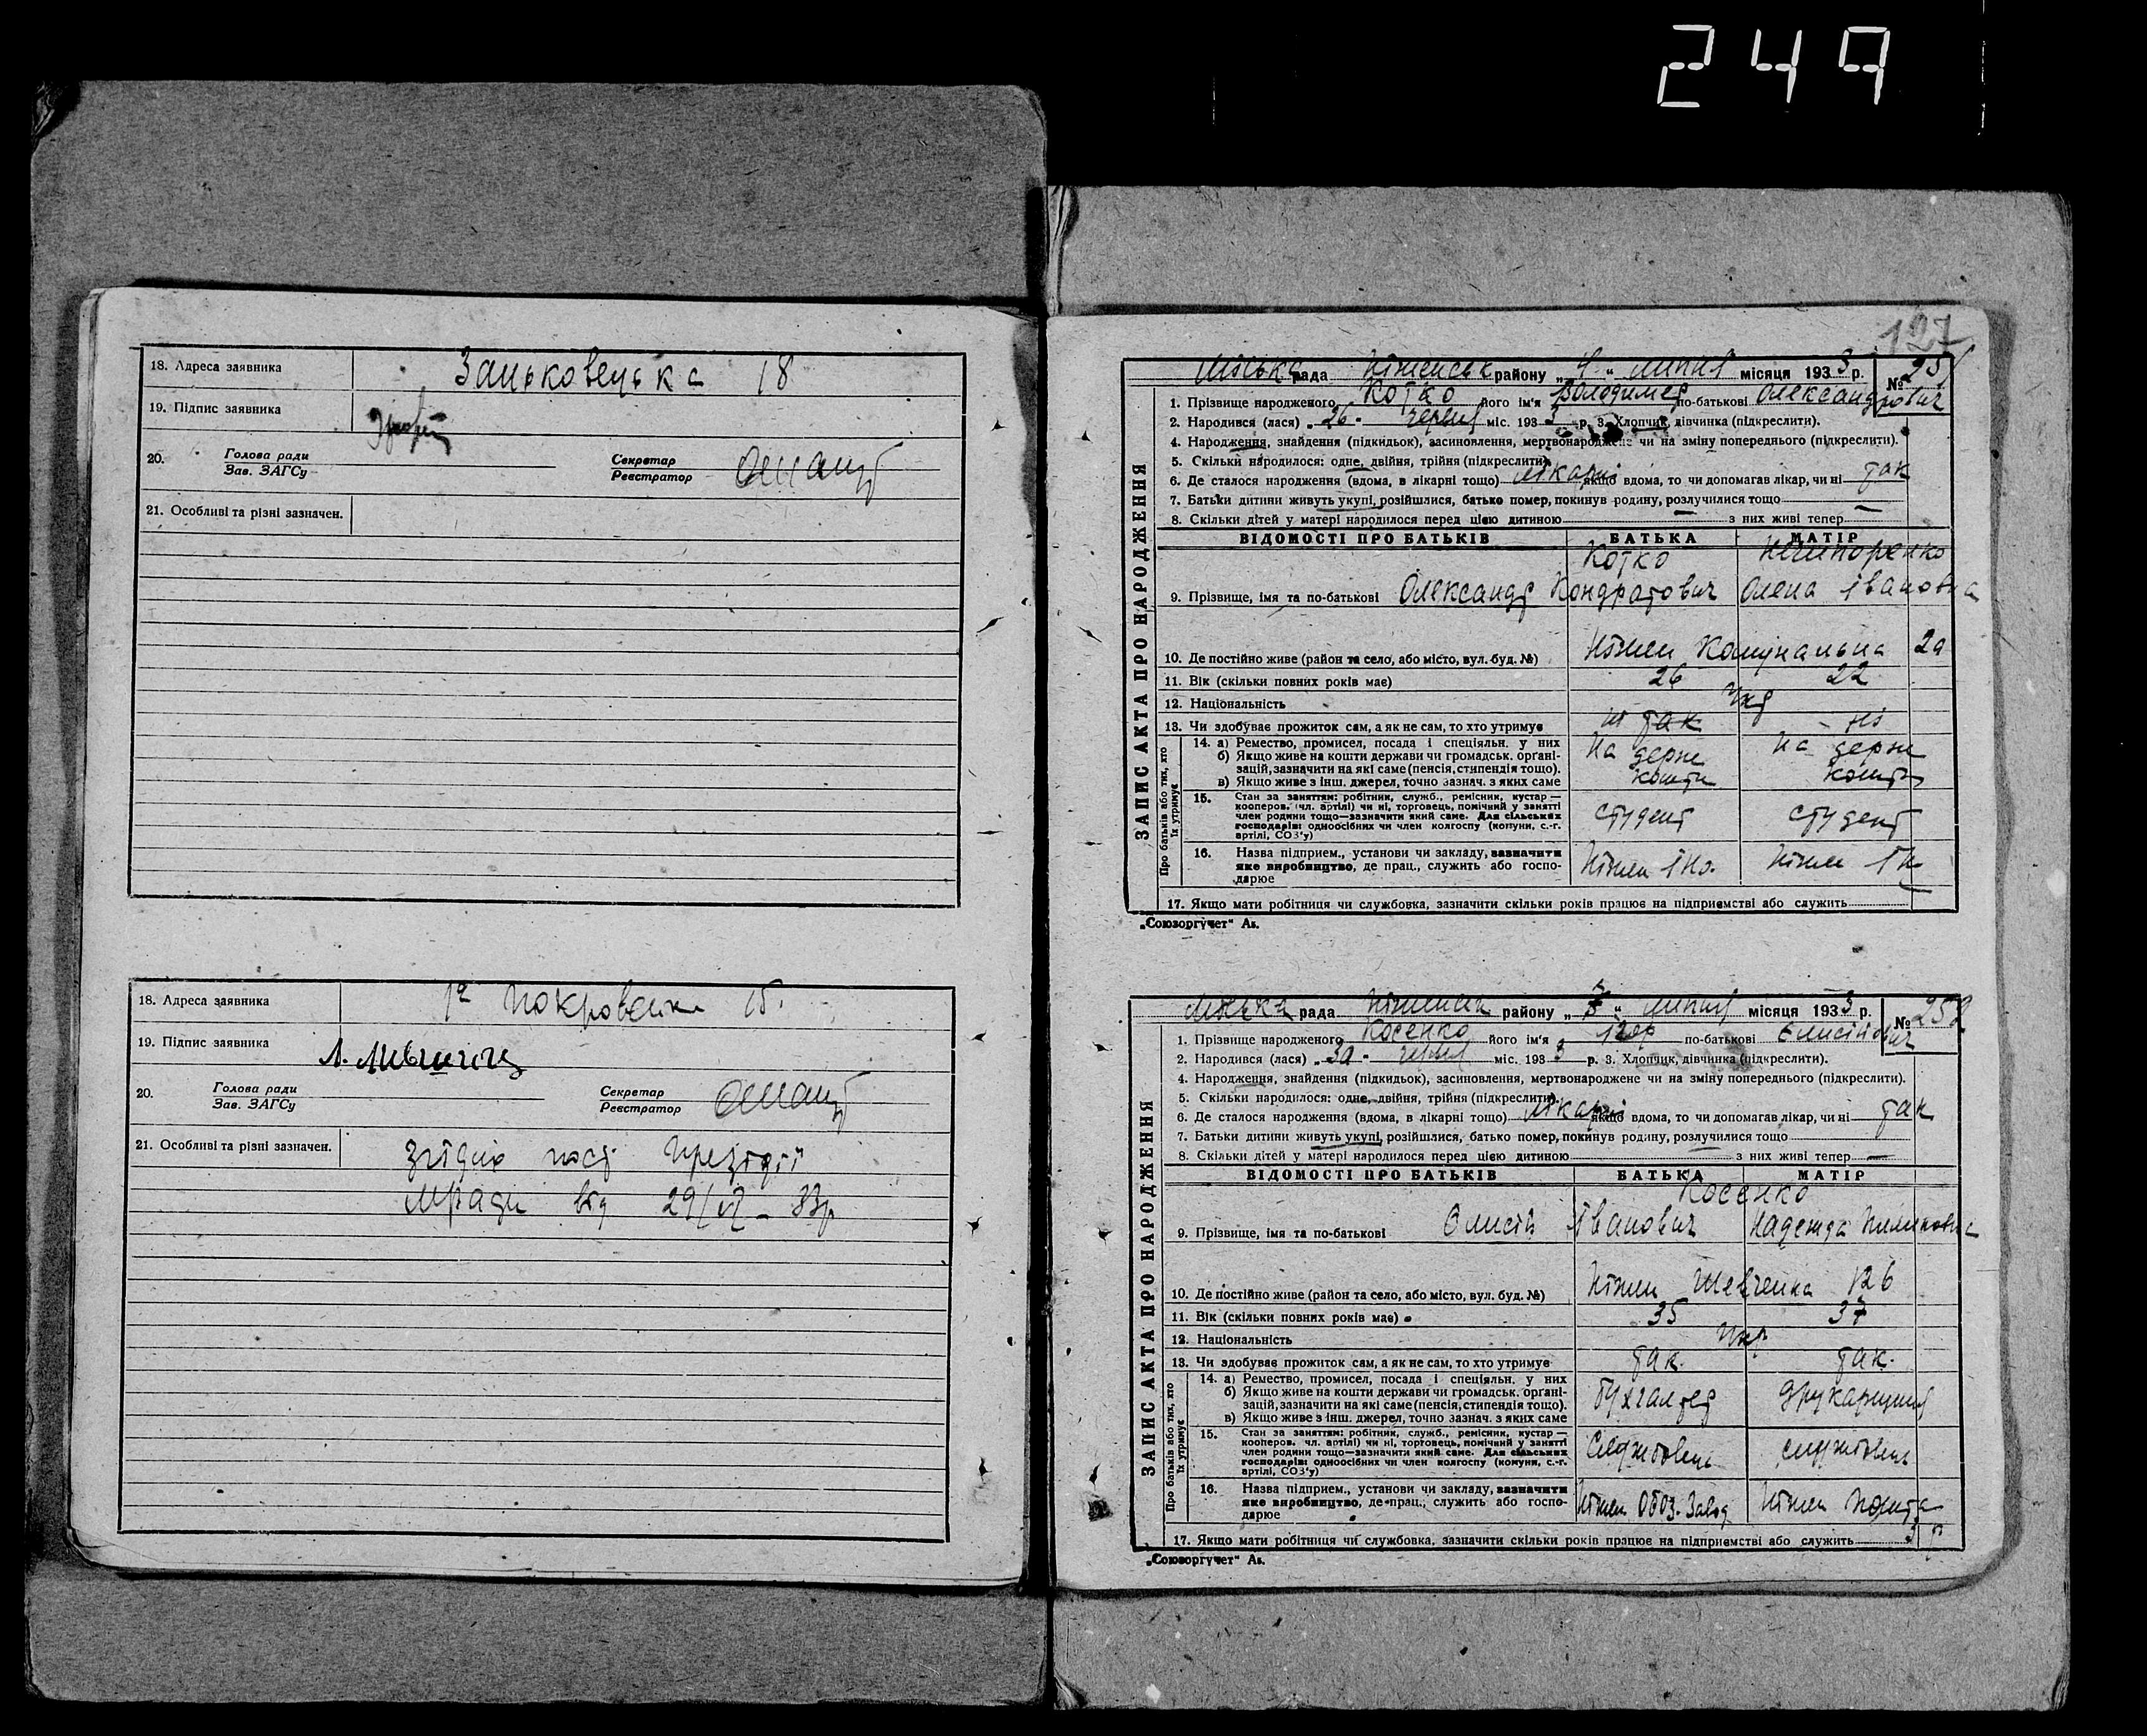 249
18. Адреса заявника Заньковецька 18
19. Підпис заявника
20. Голова ради
Зав. ЗАГСу
Секретар
Реєстратор
21. Особливі та різні зазначен.
18. Адреса заявника 1а Покровська 15.
19. Підпис заявника
20. Голова ради
Зав. ЗАГСу
Секретар
Реєстратор
21. Особливі та різні зазначен. Згідно пост Президії
Мради від 29/VI – 33р
127
ЗАПИС АКТА ПРО НАРОДЖЕННЯ
Міська рада Ніженськ району „4“ липня місяця 1933 р. № 251
1. Прізвище народженого Котко його ім'я Володимер по-батькові Олександрович
2. Народився (лася) 26 червня міс. 1933 р. 3. Хлопчик, дівчинка (підкреслити).
4. Народження, знайдення (підкидьок), засиновлення, мертвонароджене чи на зміну попереднього (підкреслити).
5. Скільки народилося: одне, двійня, трійня (підкреслити)
6. Де сталося народження (вдома, в лікарні тощо) лікарні якщо вдома, то чи допомагав лікар, чи ні так
7. Батьки дитини живуть укупі, розійшлися, батько помер, покинув родину, розлучилися тощо
8. Скільки дітей у матері народилося перед цією дитиною — з них живі тепер —
ВІДОМОСТІ ПРО БАТЬКІВ БАТЬКА МАТІР
Котко Нечипоренко
9. Прізвище, імя та по-батькові Олександр Кондратович Олена Івановна
10. Де постійно живе (район та село, або місто, вул. буд. №) Ніжен Комунальна 2а
11. Вік (скільки повних років має) 26 22
12. Національність Укр
13. Чи здобуває прожиток сам, а як не сам, то хто утримує ні так – ні
Про батьків або тих, хто їх утримує
14. а) Ремество, промисел, посада і спеціяльн. у них
б) Якщо живе на кошти держави чи громадськ. органі-
зацій, зазначити на які саме (пенсія, стипендія тощо).
в) Якщо живе з інш. джерел, точно зазнач. з яких саме
На держ кошти На держ кошти
15. Стан за заняттям: робітник, служб., ремісник, кустар —
кооперов. (чл. артілі) чи ні, торговець, помічний у занятті
член родини тощо—зазначити який саме. Для сільських
господарів: одноосібних чи член колгоспу (комуни, с.-г.
артілі, СОЗ'у)
студент студент
16. Назва підприєм., установи чи закладу, зазначити
яке виробництво, де прац., служить або госпо-
дарює
Ніжен ІНО. Ніжен
17. Якщо мати робітниця чи службовка, зазначити скільки років працює на підприємстві або служить
„Союзоргучет“ Ак.
ЗАПИС АКТА ПРО НАРОДЖЕННЯ
Міська рада Ніженськ району липня місяця 1933 р. № 252
1. Прізвище народженого Косенко його ім'я Ігор по-батькові Єлисійович
2. Народився (лася) 30 червня міс. 1933 р. 3. Хлопчик, дівчинка (підкреслити).
4. Народження, знайдення (підкидьок), засиновлення, мертвонароджене чи на зміну попереднього (підкреслити).
5. Скільки народилося: одне, двійня, трійня (підкреслити)
6. Де сталося народження (вдома, в лікарні тощо) лікарні якщо вдома, то чи допомагав лікар, чи ні так
7. Батьки дитини живуть укупі, розійшлися, батько помер, покинув родину, розлучилися тощо
8. Скільки дітей у матері народилося перед цією дитиною — з них живі тепер —
ВІДОМОСТІ ПРО БАТЬКІВ БАТЬКА МАТІР
Косенко
9. Прізвище, імя та по-батькові Єлисій Іванович Надежда
10. Де постійно живе (район та село, або місто, вул. буд. №) Ніжен Шевченка 126
11. Вік (скільки повних років має) 35 37
12. Національність Укр
13. Чи здобуває прожиток сам, а як не сам, то хто утримує так. так.
Про батьків або тих, хто їх утримує
14. а) Ремество, промисел, посада і спеціяльн. у них
б) Якщо живе на кошти держави чи громадськ. органі-
зацій, зазначити на які саме (пенсія, стипендія тощо).
в) Якщо живе з інш. джерел, точно зазнач. з яких саме
бухгалтер друкарщиця
15. Стан за заняттям: робітник, служб., ремісник, кустар —
кооперов. чл. артілі) чи ні, торговець, помічний у занятті
член родини тощо—зазначити який саме. Для сільських
господарів: одноосібних чи член колгоспу (комуни, с.-г.
артілі, СОЗ'у)
Службовець службовець
16. Назва підприєм., установи чи закладу, зазначити
яке виробництво, де прац., служить або госпо-
дарює
Ніжен Обоз. Завод Ніжен пошта
17. Якщо мати робітниця чи службовка, зазначити скільки років працює на підприємстві або служить 3 р
„Союзоргучет“ Ак.